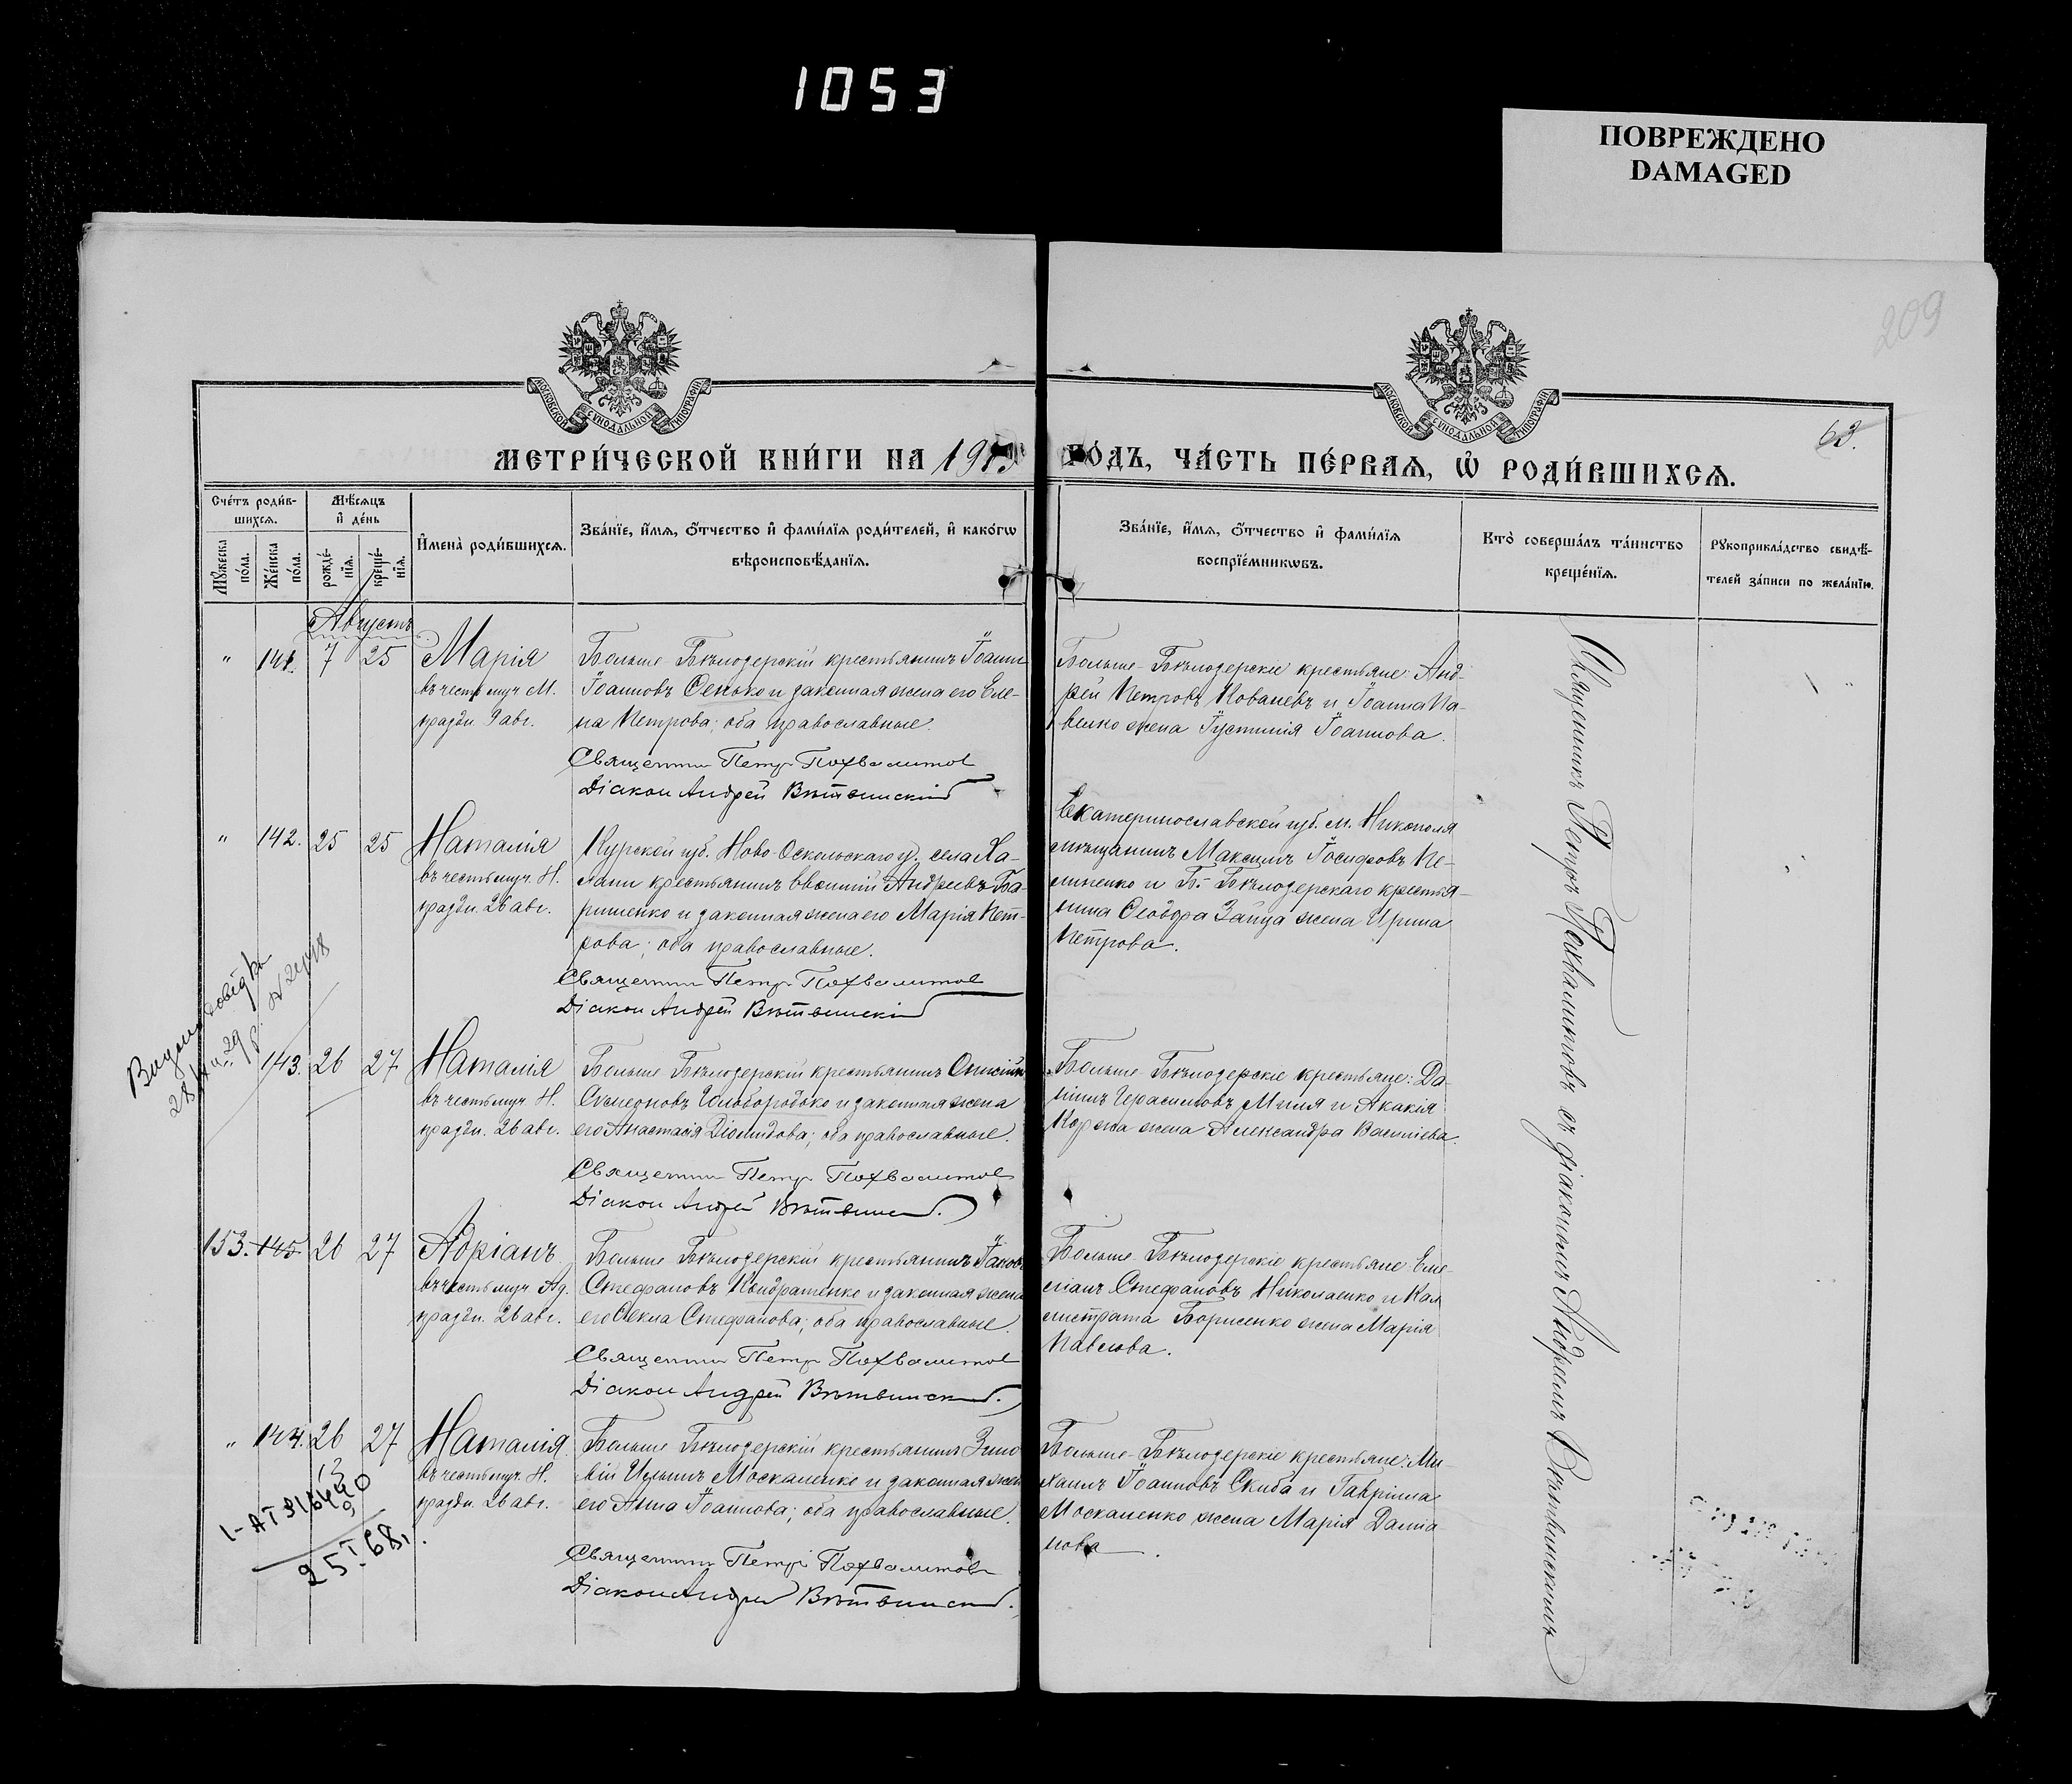 1053
ПОВРЕЖДЕНО
DAMAGED
209
МОСКОВСКОЙ СУНОДАЛЬНОЙ ТИПОГРАФІИ
МОСКОВСКОЙ СУНОДАЛЬНОЙ ТИПОГРАФІИ
63.
МЕТРИ́ЧЕСКОЙ КНИ́ГИ НА 1913
ГО́ДЪ, ЧА́СТЬ ПЕ́РВАѦ, Ѡ҆ РОДИ́ВШИХСѦ.
Сче́тъ роди́в-
шихсѧ.
Мѣ́сѧцъ
и҆ де́нь
Мꙋ́жеска
по́ла.
Же́нска
по́ла.
рожде́-
нїѧ.
креще́-
нїѧ.
И҆мена̀ роди́вшихсѧ.
Зва́нїе, и҆́мѧ, ѻ҆́тчество и҆ фами́лїѧ роди́телей, и҆ како́гѡ
вѣроисповѣ́данїѧ.
Зва́нїе, и҆́мѧ, ѻ҆́тчество и҆ фами́лїѧ
воспрїе́мникѡвъ.
Кто̀ соверша́лъ та́инство
креще́нїѧ.
Рꙋкоприкла́дство свидѣ́-
телей за́писи по жела́нїю.
Августъ
" 141. 7 25
Марія
въ честь муч. М.
праздн. 9 авг.
Больше Бѣлозерскій крестьянинъ Іоаннъ
Іоанновъ Сенько и законная жена его Еле-
на Петрова; оба православные.
Священникъ Петръ Похвалитовъ
Діаконъ Андрей Вѣтвинскій
Больше-Бѣлозерскіе крестьяне: Анд-
рей Петровъ Ковалевъ и Іоанна Па-
венко жена Іустинія Іоаннова.
" 142. 25 25
Наталія
въ честь муч. Н.
праздн. 26 авг.
Курской губ. Ново-Оскольскаго у. села Ха-
лани крестьянинъ Евѳимій Андреевъ Ба-
ришенко и законная жена его Марія Пет-
рова; оба православные.
Священникъ Петръ Похвалитовъ
Діаконъ Андрей Вѣтвинскій
Екатеринославской губ. м. Никополя
мѣщанинъ Максимъ Іосифовъ Пе-
линенко и Б.-Бѣлозерскаго крестья-
нина Ѳеодора Зайца жена Ирина
Петрова.
143. 26 27
Наталія
въ честь муч. Н.
праздн. 26 авг.
Больше Бѣлозерскій крестьянинъ Онисимъ
Сѵмеоновъ Голобородько и законная жена
его Анастасія Діомидова; оба православные.
Священникъ Петръ Похвалитовъ
Діаконъ Андрей Вѣтвинскій.
Больше-Бѣлозерскіе крестьяне: Да-
ніилъ Герасимовъ Миля и Акакія
Коржа жена Александра Василіева.
153. 145. 26 27
Адріанъ
въ честь муч. Ад.
праздн. 26 авг.
Больше Бѣлозерскій крестьянинъ Іаковъ
Стефановъ Кондратенко и законная жена
его Ѳекла Стефанова; оба православные.
Священникъ Петръ Похвалитовъ
Діаконъ Андрей Вѣтвинскій.
Больше Бѣлозерскіе крестьяне: Еме-
ліанъ Стефановъ Николаенко и Кал
листрата Борисенко жена Марія
Павлова.
" 144. 26 27
Наталія
въ честь муч. Н.
праздн. 26 авг.
Больше Бѣлозерскій крестьянинъ Зино
вій Ильинъ Москаленко и законная жена
его Анна Іоаннова; оба православные.
Священникъ Петръ Похвалитовъ
Діаконъ Андрей Вѣтвинскій.
Больше-Бѣлозерскіе крестьяне: Ми-
хаилъ Іоанновъ Скиба и Гавріила
Москаленко жена Марія Даміа-
нова.
Священникъ Петръ Похвалитовъ съ діакономъ Андреемъ Вѣтвинскимъ
25 I 68 г.